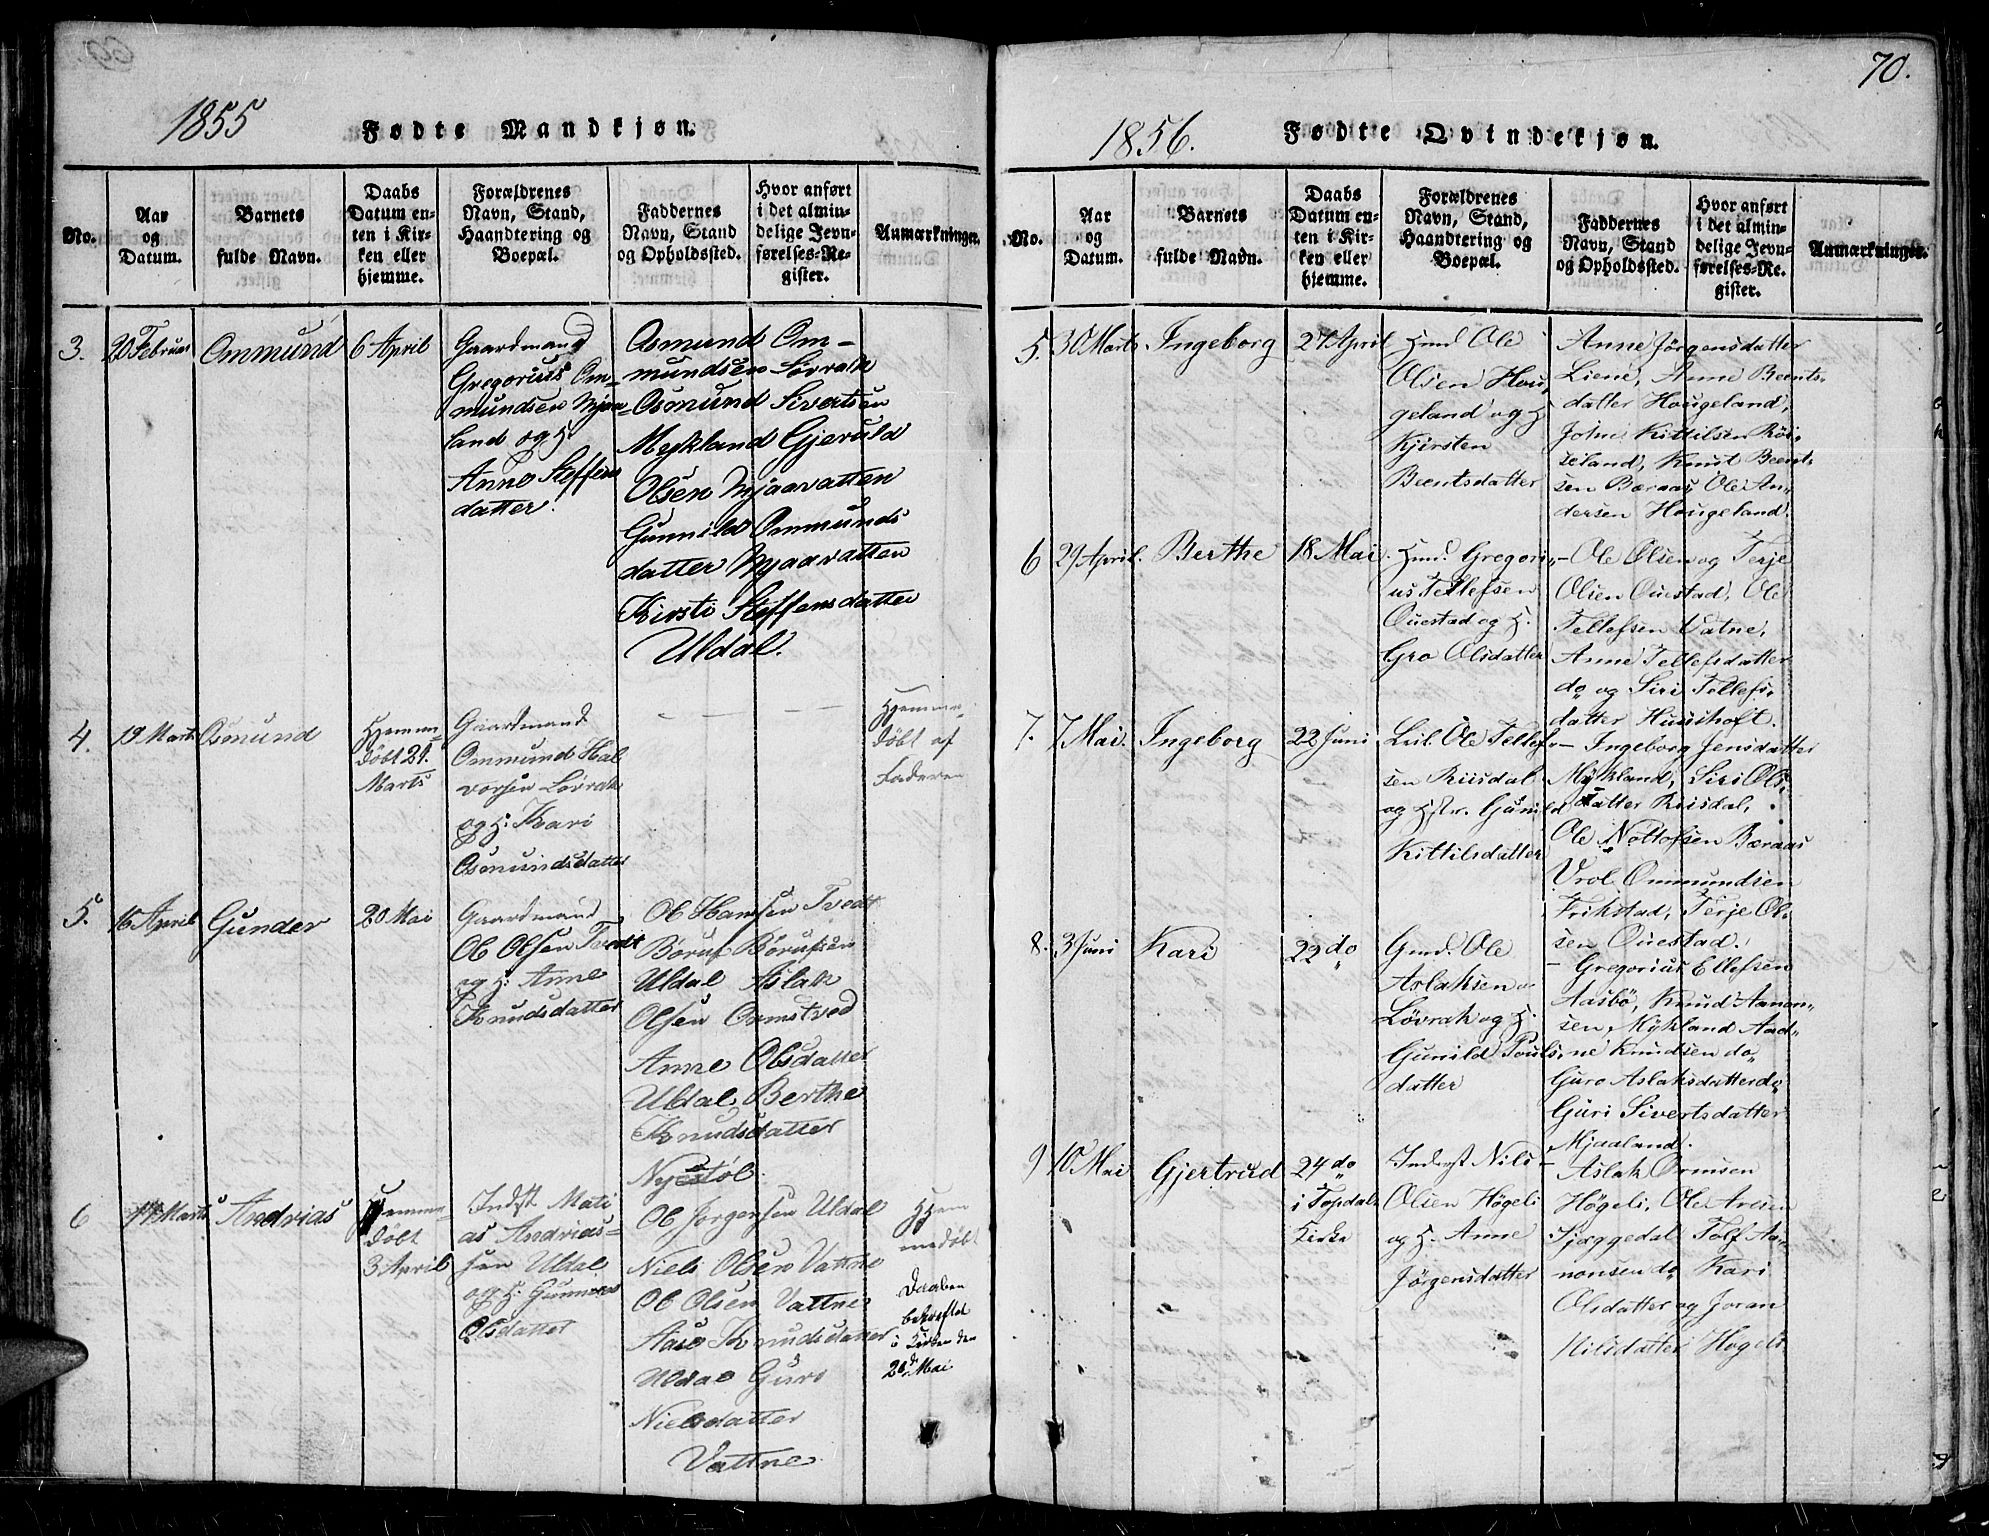 1855
Fødte Mandkjøn.
No.
Aar
og
Datum.
Barnets
fulde Navn.
Daabs
Datum en-
ten i Kir-
ken eller
hjemme.
Forældrenes
Navn, Stand,
Haandtering og
Boepæl.
Faddernes
Navn, Stand
og Opholdssted.
Hvor anført
i det almin-
delige Jevn-
førelses-Re-
gister.
Anmærkninger.
3.
20 Februar
Ommund
6 April
Gaardmand
Gregorius Om-
mundsen Mjaa-
land og H.
Anne Steffens
datter.
Osmund Om-
mundsen Lovrak
Osmund Sivertsen
Mykland Gjeruld
Olsen Mjaavatten
Gunnild Ommunds
datter Mjaavatten
Kirsti Steffensdatter
Uldal.
4.
19 Marts
Osmund
Hjemme-
døbt 21.
Marts
Gaardmand
Ommund Hal
vorsen Lovrak
og H. Kari
Osmundsdatter
Hjemme-
døbt af
Faderen
5.
16 April
Gunder
20 Mai
Gaardmand
Ole Olsen Tvedt
og H. Anne
Knudsdatter
Ole Hansen Tvedt
Børuf Børufsen
Uldal Aslak
Olsen Ormstved
Anne Olsdatter
Uldal Berthe
Knudsdatter
Nyestøl
6
17 Marts
Andrias
Hjemme-
døbt
3 April
Indst Mati
as Andrias-
sen Uldal
og H. Gunnild
Olsdatter
Ole Jørgensen Uldal
Niels Olsen Vattne
Ole Olsen Vattne
Aase Knudsdatter
Uldal Guro
Nielsdatter
Vattne
Hjem
medøbt
Daaben
bekræftet
i Kirken den
20d Mai
70.
1856.
Fødte Qvindekjøn.
No.
Aar
og
Datum.
Barnets
fulde Navn.
Daabs
Datum en-
ten i Kir-
ken eller
hjemme.
Forældrenes
Navn, Stand,
Haandtering og
Boepæl.
Faddernes
Navn, Stand
og Opholdssted.
Hvor anført
i det almin-
delige Jevn-
førelses-Re-
gister.
Anmærkninger.
5.
30 Marts
Ingeborg
27 April
Hmd Ole
Olsen Hou-
geland og H
Kjersten
Beentsdatter
Anne Jørgensdatter
Liene, Anne Beents-
datter Hougeland,
John Kittilsen Røi-
seland, Knut Beent-
sen Beraas, Ole An-
dersen Hougeland.
6
29 April.
Berthe
18 Mai.
Hmd. Gregori-
us Tellefsen
Ouestad og H.
Gro Olsdatter
- Ole Olsen og Terje
Olsen Ouestad, Ole
Tellefsen Vatne,
Anne Tellefsdatter
do og Siri Tellefs-
datter Huusthoft.
7.
7 Mai.
Ingeborg
22 Juni
Leil. Ole Tellef
sen Riisdal
og Hstr. Gunild
Kittilsdatter
- Ingeborg Jensdatter
Mykland, Siri Ols-
datter Riisdal,
Ole Nottofsen Beraas
Vrol Ommundsen
Frikstad, Terje Ol-
sen Ouestad.
8.
3 Juni
Kari
22 do
Gmd. Ole
Aslaksen
Løvrak og H.
Gunild Pouls-
datter
- Gregorius Ellefsen
Aasbö, Knud Aanon-
sen, Mykland Aad-
ne Knudsen do
Guro Aslaksdatter do
Guri Sivertsdatter
Mjaaland.
9
10 Mai
Gjertrud
24 do
i Topdals
Kirke
Inderst Nils
Olsen Högeli
og H. Anne
Jørgensdatter
- Aslak Ormsen
Högeli, Ole Aresen
Sjæggedal Tolf Aa-
nonsen do Kari
Olsdatter og Joran
Nilsdatter Hogeli